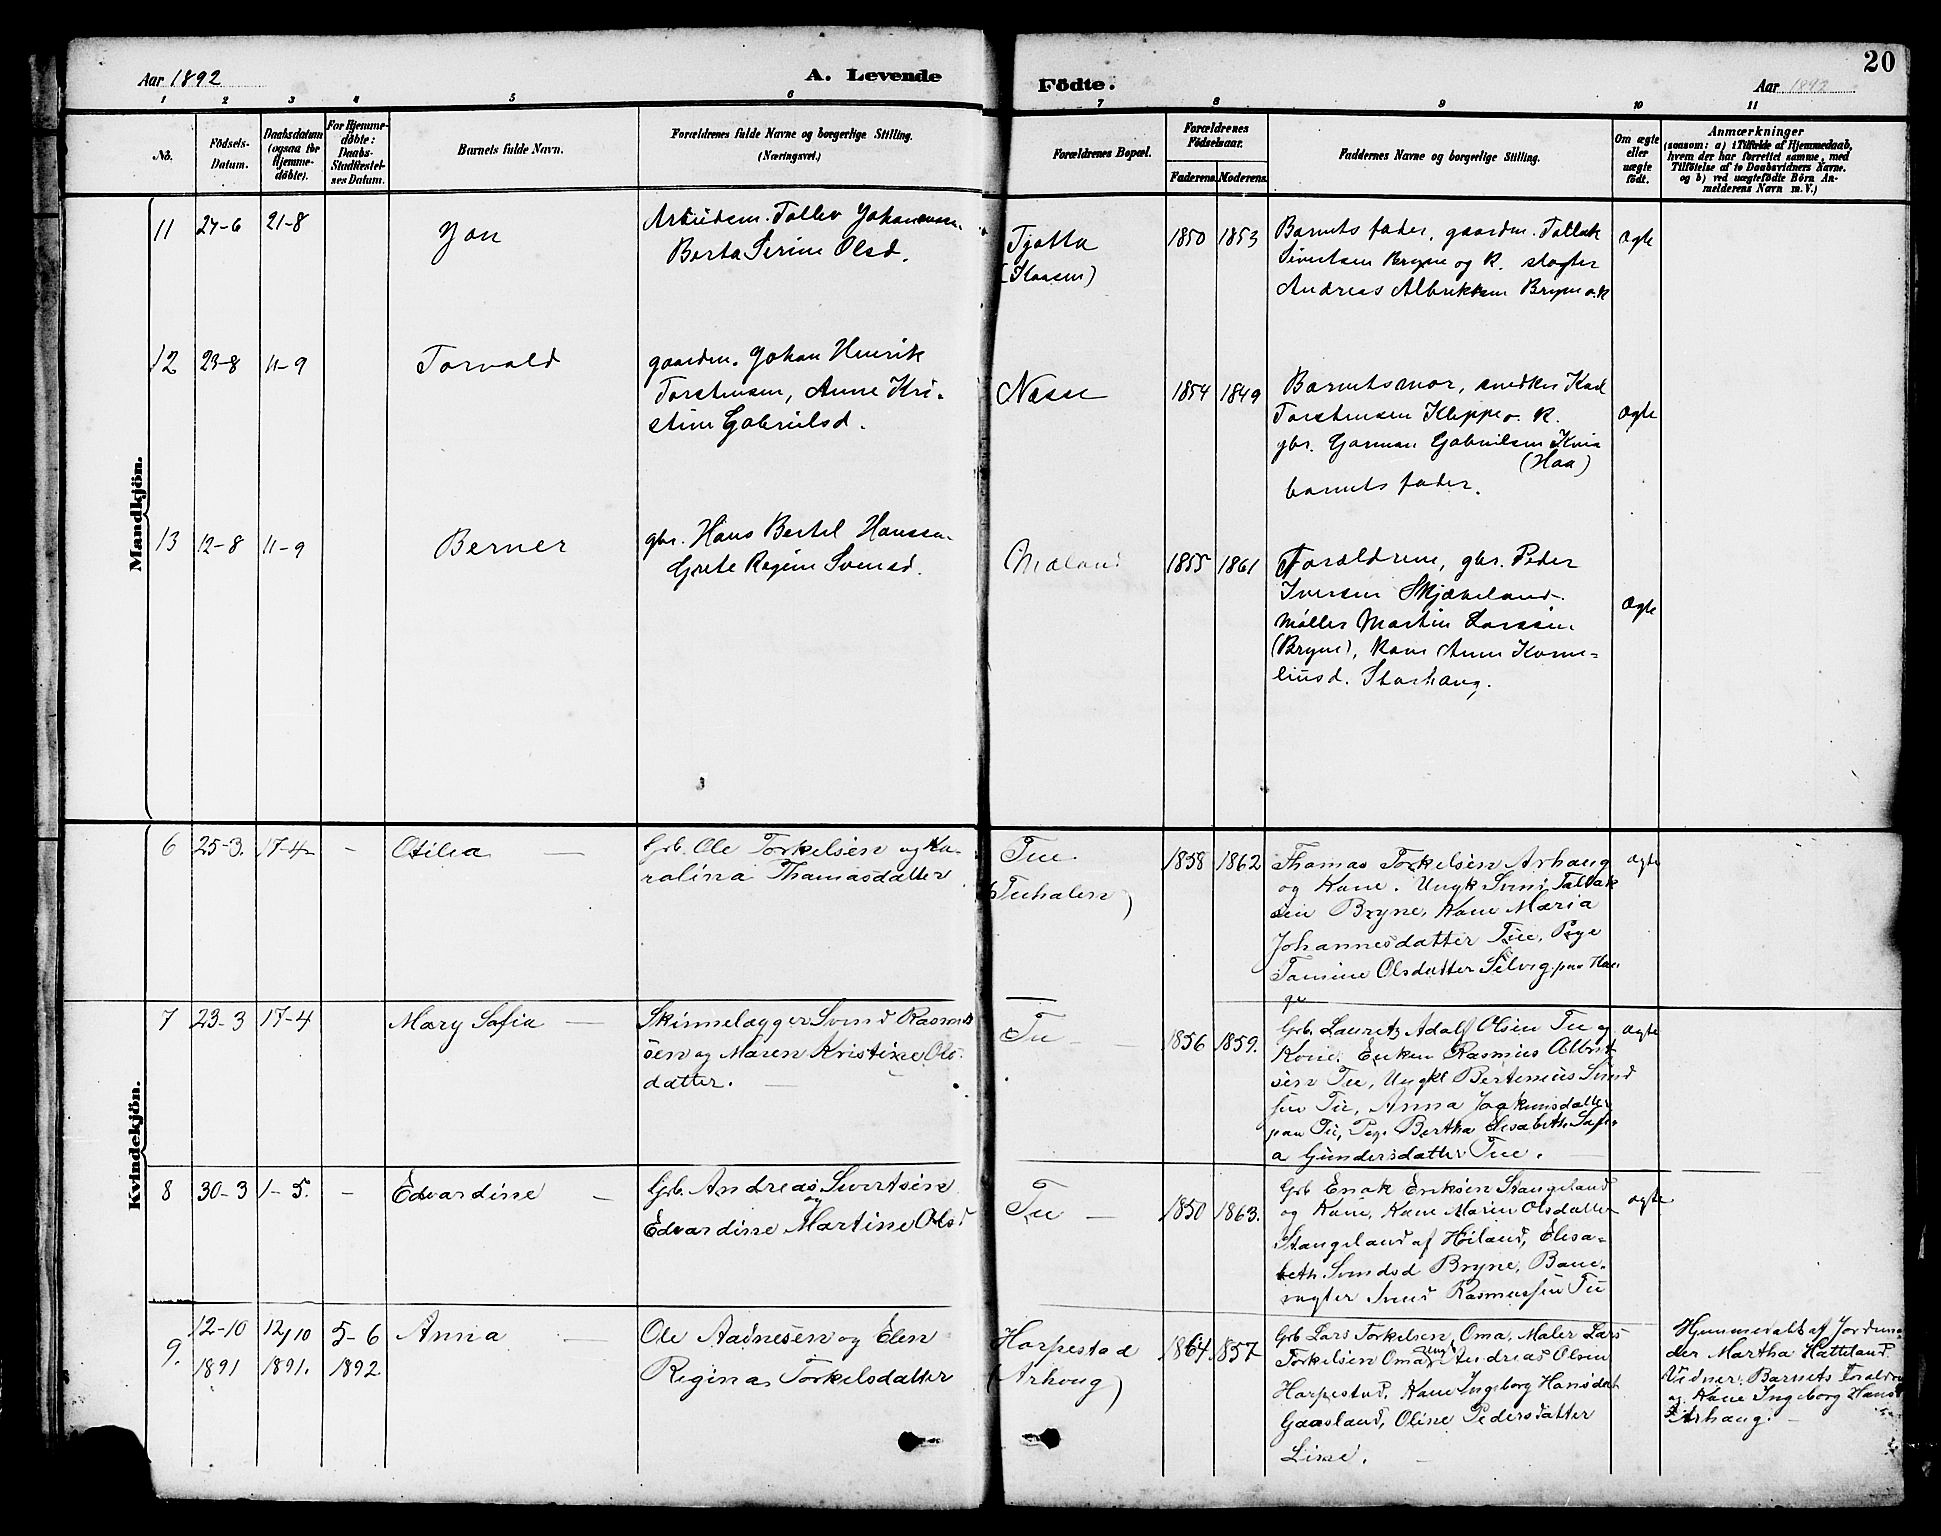 20
Aar 1892
A. Levende
Födte.
Aar 1892
1 2 3 4 5 6 7 8 9 10 11
No.
Födsels-
Datum.
Daabsdatum
(ogsaa for
Hjemme-
döbte).
For Hjemme-
döbte:
Daabs-
Stadfæstel-
ses Datum.
Barnets fulde Navn.
Forældrenes fulde Navne og borgerlige Stilling.
(Næringsvei.)
Forældrenes Bopæl.
Forældrenes
Födselsaar.
Faderens. Moderens.
Faddernes Navne og borgerlige Stilling.
Om ægte
eller
uægte
födt.
Anmærkninger
(saasom: a) i Tilfælde af Hjemmedaab,
hvem der har forrettet samme, med
Tilföielse af to Daabsvidners Navne.
og b) ved uægtefödte Börn An-
melderens Navn m. V.)
Mandkjön.
11 27-6 21-8
Jon
Arbeidsm. Tollev Johannessen
Berta Serine Olsd.
Tjotta
(Kaasen)
1850 1853
Barnets fader, gaardm. Tollak
Sivertsen Bryne og k. slagter
Andreas Albriktsen Bryne o. k
Ægte
12 23-8 11-9
Torvald
gaardm. Johan Henrik
Torstensen, Anne Kri-
stine Gabrielsd.
Næsse
1854 1849
Barnetsmor, snedker Karl
Torstensen Kleppe o. k.
gbr. Gorman Gabrielsen Kvia
(Haa)
barnets fader.
Ægte
13 12-8 11-9
Berner
gbr. Hans Bertel Hanssen
Grete Regine Svensd.
Mæland
1855 1861
Forældrene, gbr. Peder
Iversen Skjæveland.
Møller Martin Larssen
(Bryne), kone Anne Korne-
liusd. Storhaug.
Ægte
Kvindekjön.
6 25-3. 17-4 -
Otilia
Grb. Ole Torkelsen og Ka-
rolina Thamasdatter
Tue
(Tuhalen)
1858 1862
Thamas Torkelsen Arhaug
og Kone. Ungk Svend Tallak
sen Bryne, Kone Maria
Johannesdatter Tue, Pige
Tamine Olsdatter Selvig paa Hau
ge
ægte
7 23-3 17-4
Mary Safia
Skinnelægger Svend Rasmus
sen og Maren Kristine Ols-
datter.
Tu
1856 1859.
Grb. Lauretz Adalf Olsen Tu og
Kone. Enkem Rasmus Albret
sen Tu, Ungkl Bertinius Svend
sen Tu, Anna Joakimsdatter
paa Tu, Pige Bertha Elisabeth Safi-
a Gundersdatter Tue.
ægte
8 30-3 1-5. -
Edvardine
Grb. Andreas Sivertsen
og
Edvardine Martine Olsd
Tu
1850 1863.
Grb Enok Eriksen Stangeland
og Kone, Kone Maren Olsdatter
Stangeland af Høiland, Elisa-
beth Svendsd Bryne, Bane-
vagter Svend Rasmussen Tu
ægte
9. 12-10 12/10 5-6
1891 1891. 1892
Anna
Ole Aadnesen og Elen
Regina Torkelsdatter
Harpestad
(Arhoug)
1864 1857
Grb Lars Torkelsen Oma, Maler Lars
Torkelsen Oma, Ungk Andreas Olsen
Harpestad, Kone Ingeborg Hansdat
Gaasland, Oline Pedersdatter
Line.
Hjemmedøbt af Jordmo
der Martha Hatteland.
Vidner: Barnets Foraldre
og Kone Ingeborg Hans
Arhaug.